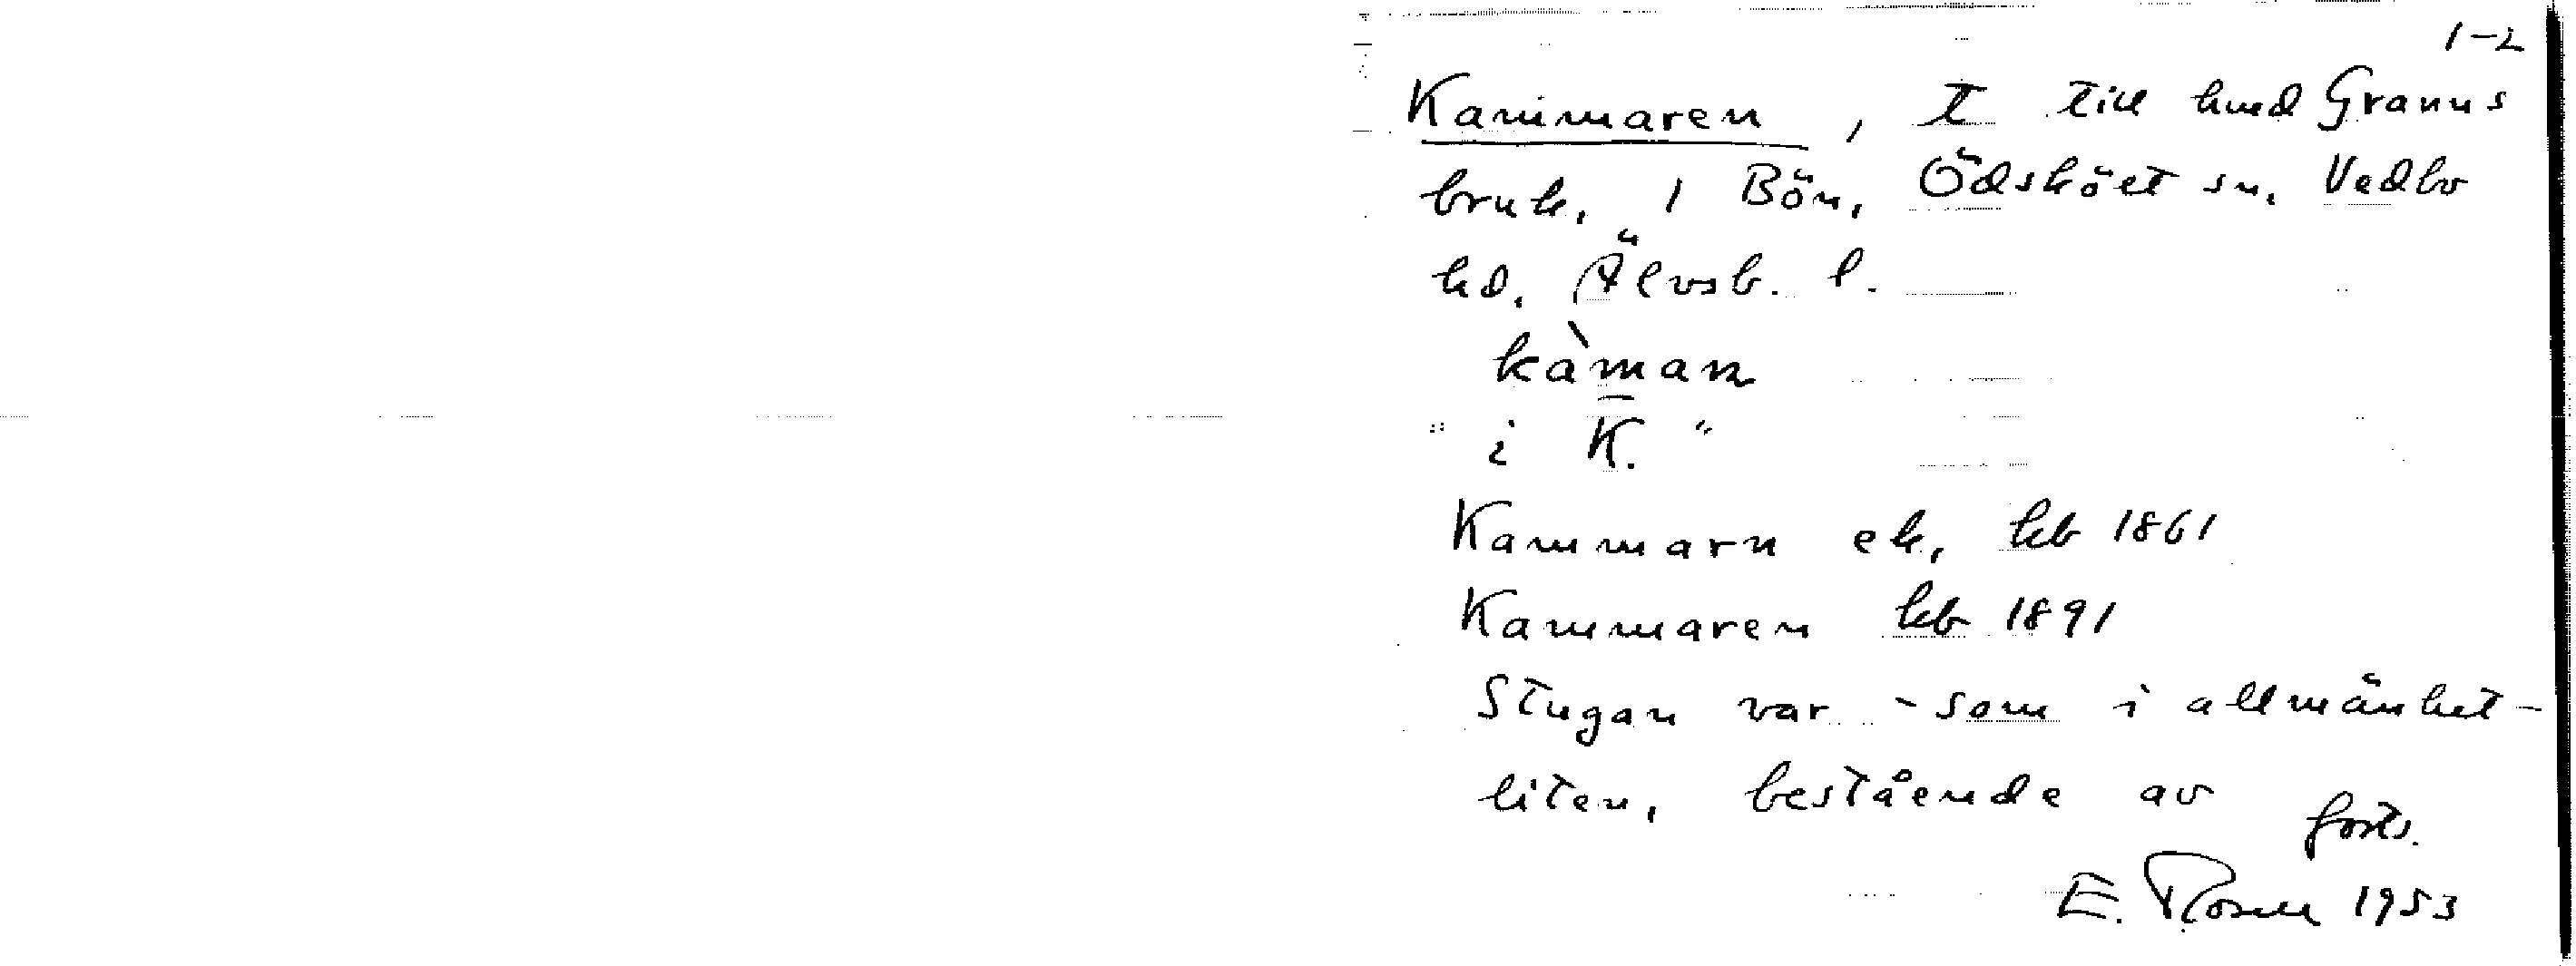 1-2
Kammaren, t till hmd Granns
bruk, 1 Bön, Ödsköet sn. Vedbo
hd. Älvsb. l.
kàman
" i K. "
Kammarn ek, hb 1861
Kammaren hb 1891
Stugan var - som i allmänhet -
liten, bestående av
forts.
E. Rosell 1953